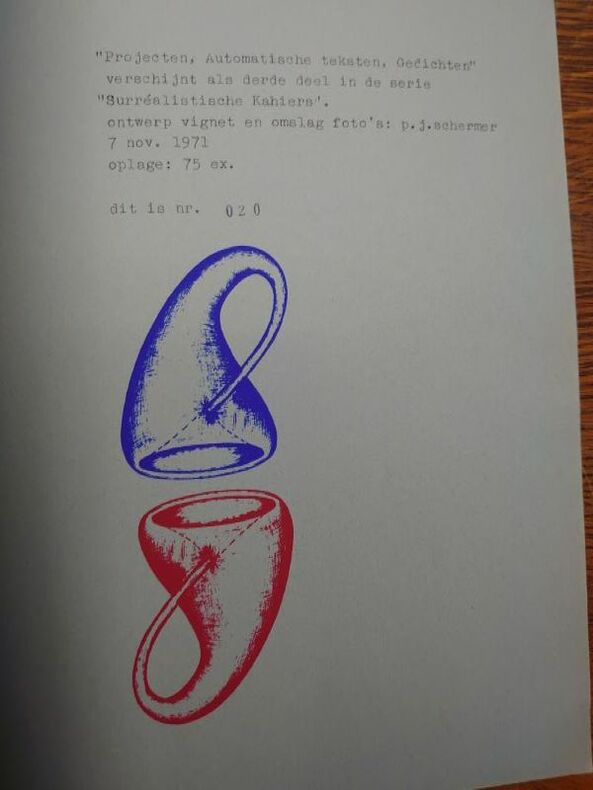 "Projecten, Automatische teksten, Gedichten"
verschijnt als derde deel in de serie
"Surréalistische Kahiers".
ontwerp vignet en omslag foto's: p.j.schermer
7 nov. 1971
oplage: 75 ex.
dit is nr. 020